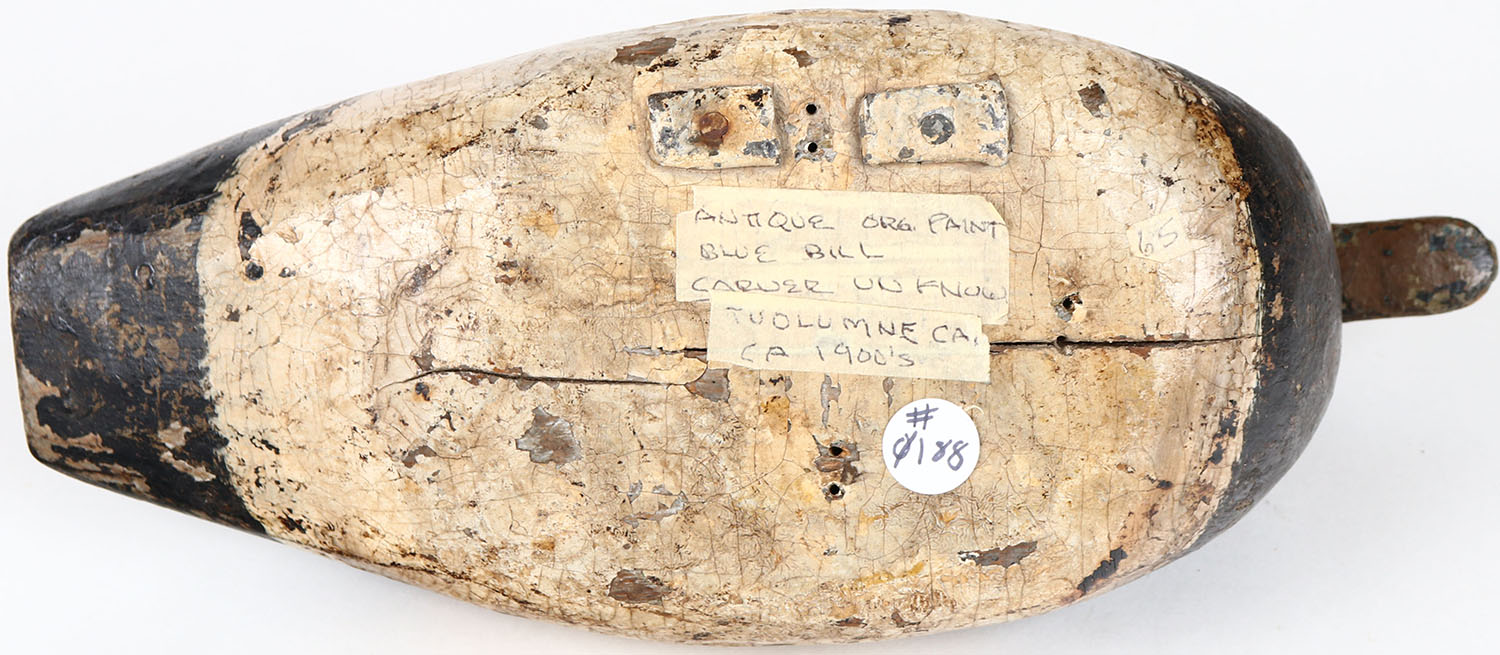 ANTIQUE ORG. PAINT
BLUE BILL
CARVER UNKNOW
TUOLUMNE CA.
CA 1900's
65
#
0188